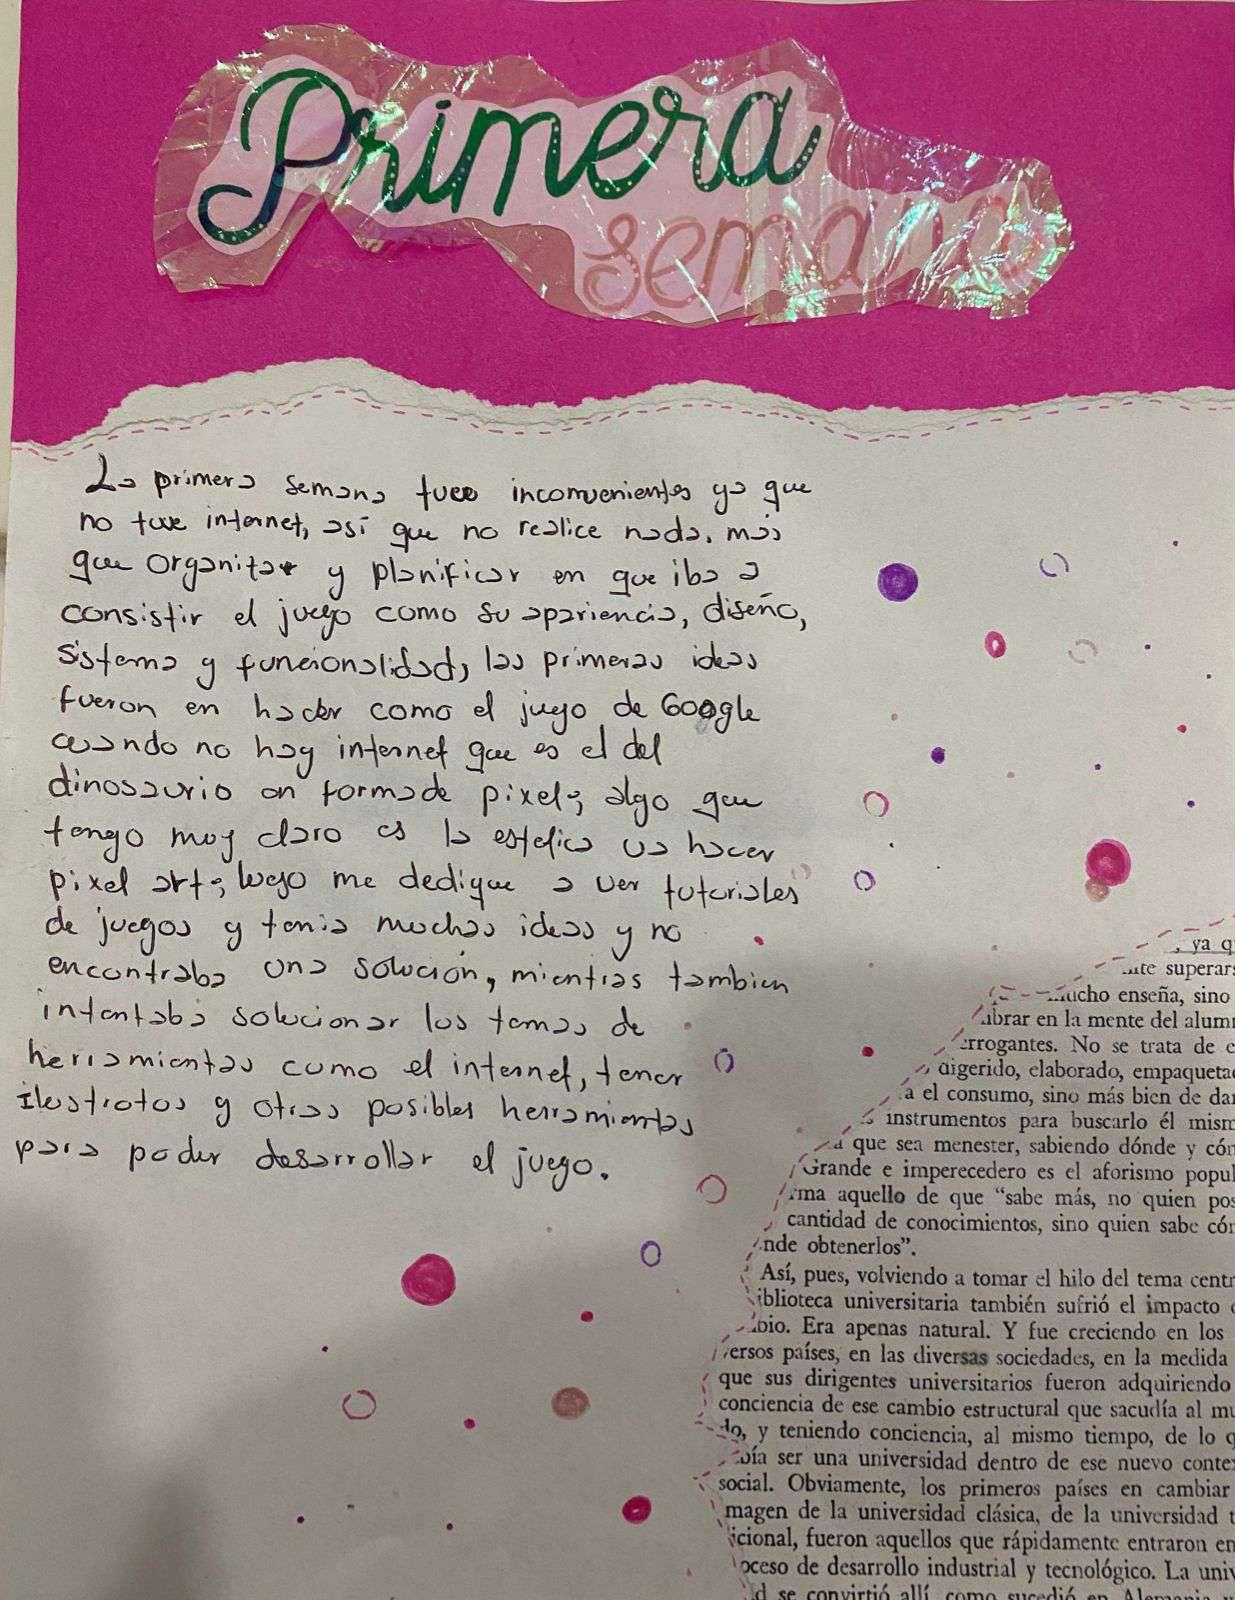 Primera
semana
La primera semana tuve inconvenientes ya que
no tuve internet, así que no realice nada, más
que organizar y planificar en que iba a
consistir el juego como su apariencia, diseño,
sistema y funcionalidad, las primeras ideas
fueron en hacer como el juego de Google
cuando no hay internet que es el del
dinosaurio en forma de pixel; algo que
tengo muy claro es la estetica va hacer
pixel art; luego me dedique a ver tutoriales
de juegos y tenia muchas ideas y no
encontraba una solución, mientras tambien
intentaba solucionar los temas de
herramientas como el internet, tener
ilustrotos y otras posibles herramientas
para poder desarrollar el juego.
, ya q
te superars
mucho enseña, sino
brar en la mente del alum
rrogantes. No se trata de e
digerido, elaborado, empaqueta
a el consumo, sino más bien de da
instrumentos para buscarlo él mism
a que sea menester, sabiendo dónde y có
Grande e imperecedero es el aforismo popul
rma aquello de que “sabe más, no quien pos
cantidad de conocimientos, sino quien sabe có
nde obtenerlos”.
Así, pues, volviendo a tomar el hilo del tema centr
iblioteca universitaria también sufrió el impacto
bio. Era apenas natural. Y fue creciendo en los
ersos países, en las diversas sociedades, en la medida
que sus dirigentes universitarios fueron adquiriendo
conciencia de ese cambio estructural que sacudía al mu
do, y teniendo conciencia, al mismo tiempo, de lo q
bía ser una universidad dentro de ese nuevo conte
social. Obviamente, los primeros países en cambiar
magen de la universidad clásica, de la universidad t
icional, fueron aquellos que rápidamente entraron en
oceso de desarrollo industrial y tecnológico. La univ
d se convirtió allí, como sucedió en Alemania